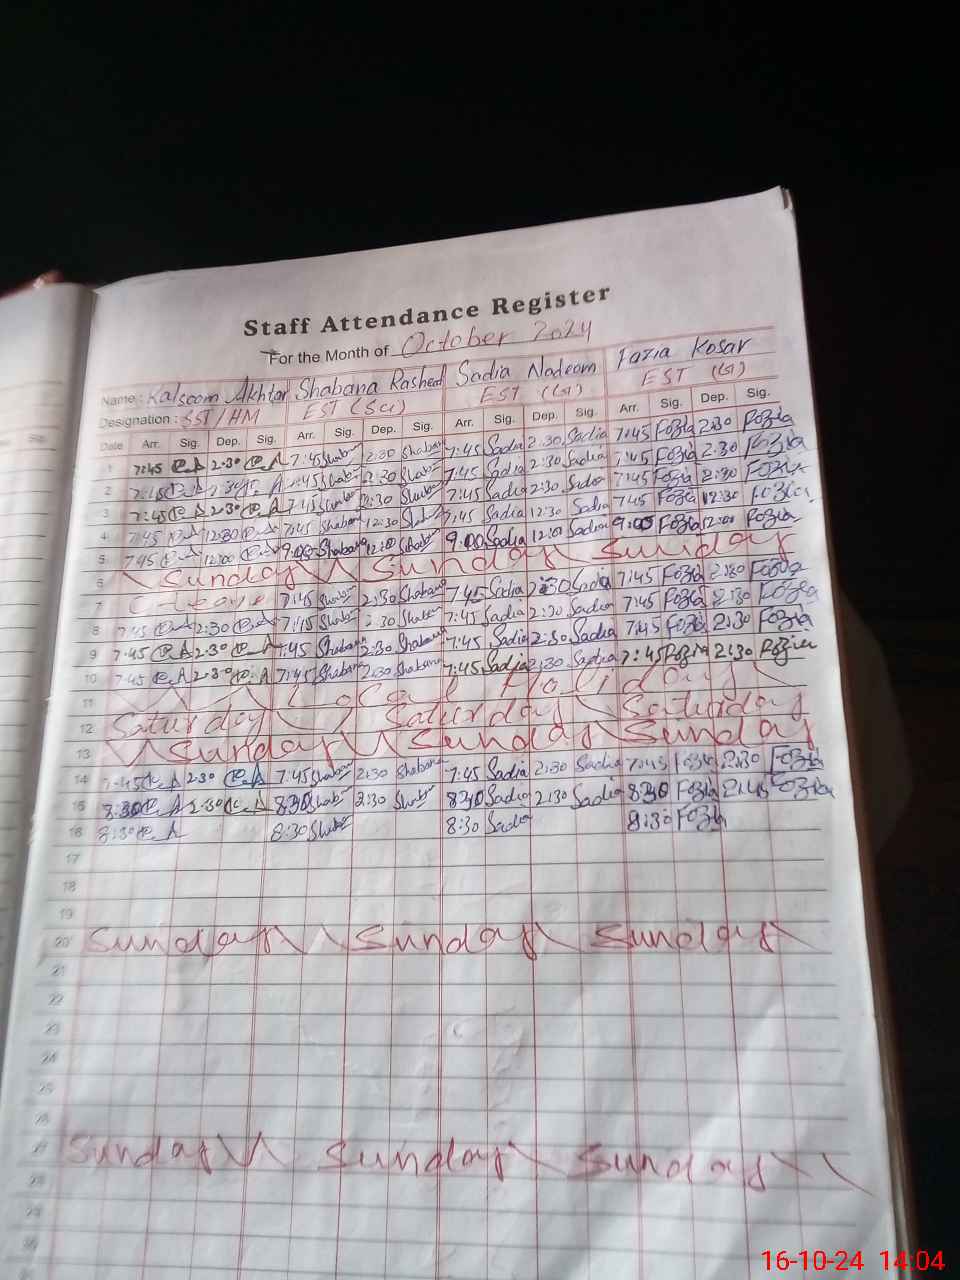 Staff Attendance Register
For the Month of October 2024
Name: Kalsoom Akhtar Shabana Rasheed Sadia Nadeem Fazia Kosar
Designation: SST/HM EST (Sci) EST (G) EST (G)
Date Arr. Sig. Dep. Sig. Arr. Sig. Dep. Sig. Arr. Sig. Dep. Sig. Arr. Sig. Dep. Sig.
1 7:45 2:30 7:45 2:30 Shabana 7:45 Sadia 2:30 Sadia 7:45 Fozia 2:30 Fozia
2 2:30 7:45 Sadia 2:30 Sadia 7:45 Fozia 2:30 Fozia
3 7:45 2:30 7:45 2:30 7:45 Sadia 2:30 Sadia 7:45 Fozia 2:30 Fozia
4 7:45 12:30 7:45 Shabana 12:30 7:45 Sadia 12:30 Sadia 7:45 Fozia 12:30 Fozia
5 7:45 12:00 9:00 Shabana 12:00 9:00 Sadia 12:00 Sadia 9:00 Fozia 12:00 Fozia
6 Sunday Sunday Sunday
7 C-leave 7:45 2:30 Shabana 7:45 Sadia 2:30 Sadia 7:45 Fozia 2:30 Fozia
8 7:45 2:30 7:45 2:30 7:45 Sadia 2:30 Sadia 7:45 Fozia 2:30 Fozia
9 7:45 2:30 7:45 Shabana 2:30 Shabana 7:45 Sadia 2:30 Sadia 7:45 Fozia 2:30 Fozia
10 7:45 2:30 7:45 Shabana 2:30 Shabana 7:45 Sadia 2:30 Sadia 7:45 Fozia 2:30 Fozia
11 Local Holiday
12 Saturday Saturday Saturday
13 Sunday Sunday Sunday
14 7:45 2:30 7:45 Shabana 2:30 Shabana 7:45 Sadia 2:30 Sadia 7:45 Fozia 2:30 Fozia
15 8:30 2:30 8:30 2:30 8:30 Sadia 2:30 Sadia 8:30 Fozia 2:45 Fozia
16 8:30 8:30 8:30 Sadia 8:30 Fozia
17
18
19
20 Sunday Sunday Sunday
21
22
23
24
25
26
27 Sunday Sunday Sunday
28
29
30
16-10-24 14:04